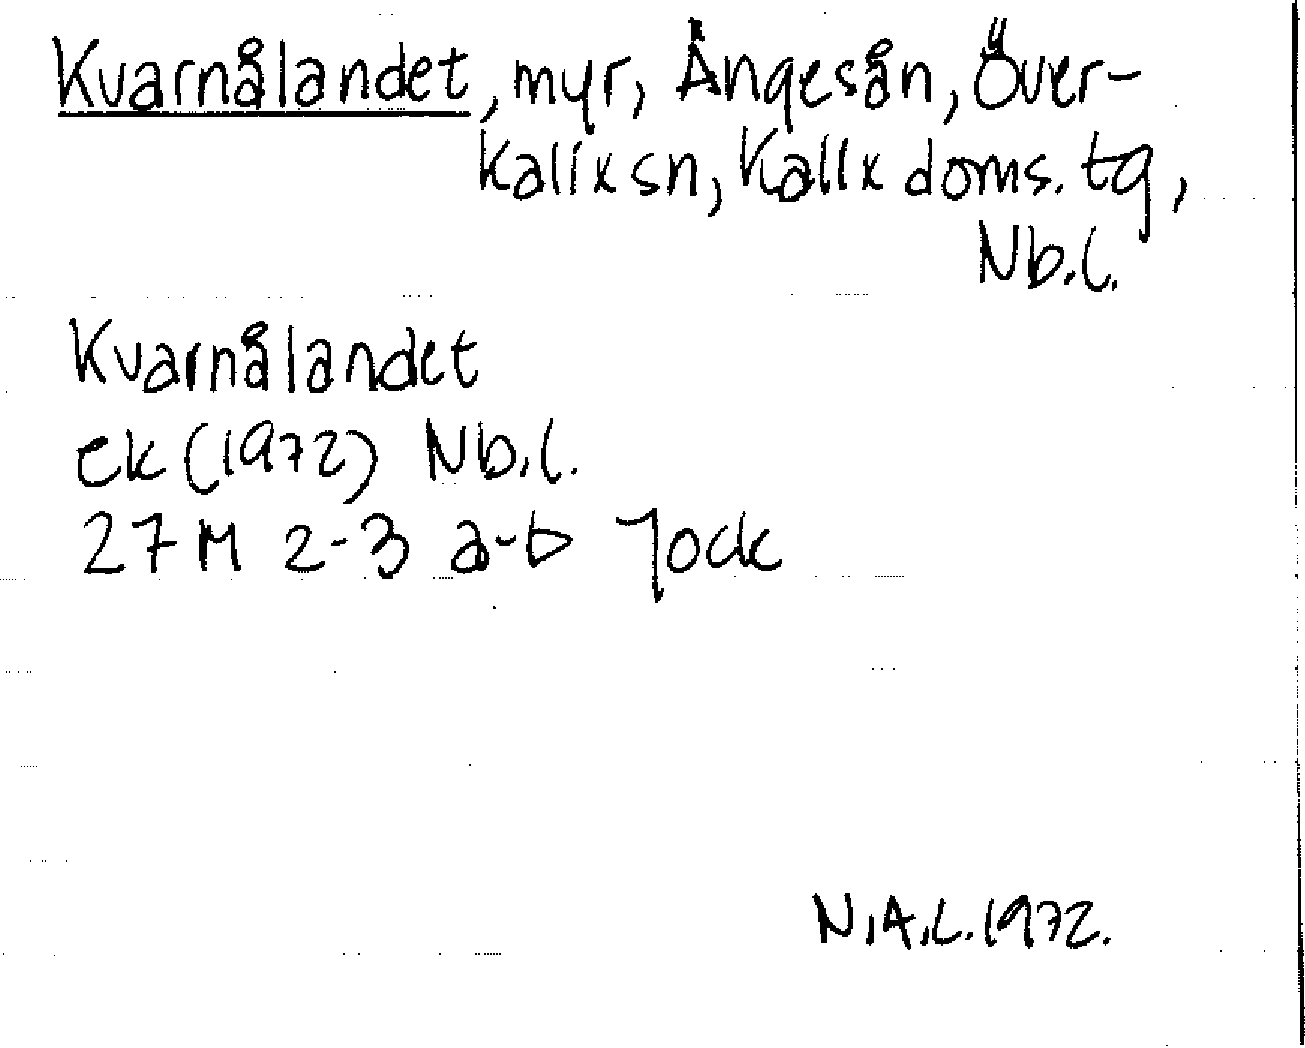 Kvarnålandet, myr, Ängesån, Över-
kalix sn, Kalix doms. tg,
Nb.l.
Kvarnålandet
ek (1972) Nb.l.
27 M 2-3 a-b Jock
N.A.L. 1972.